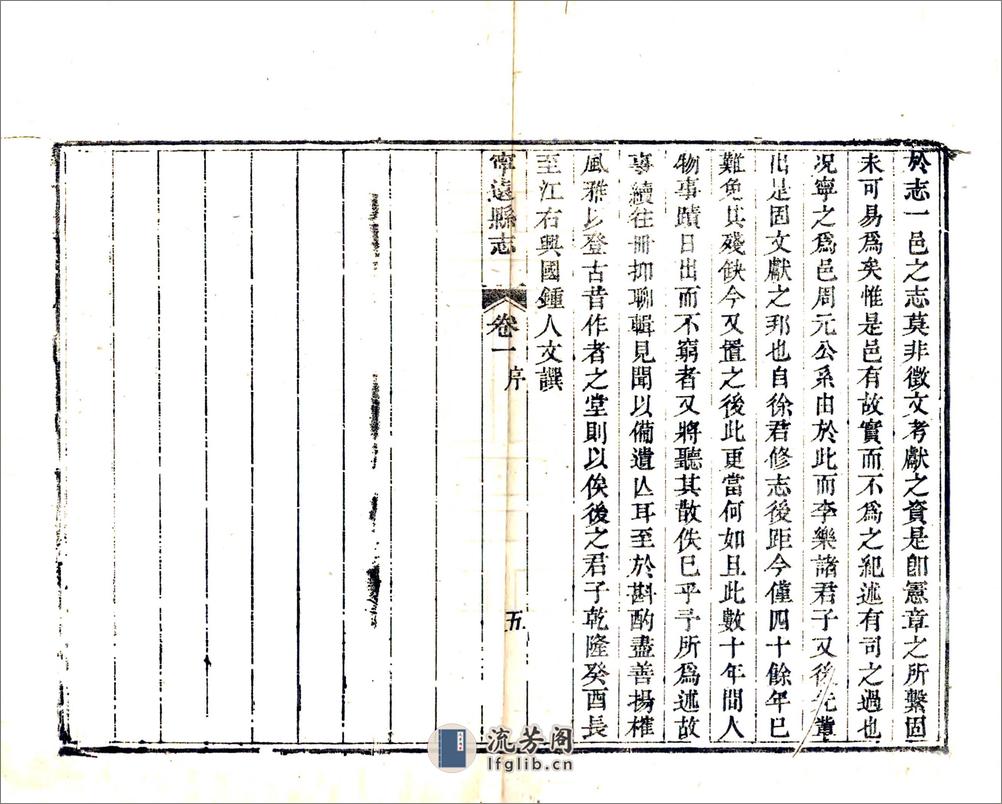 於志一邑之志莫非徵文考獻之資是卽憲章之所繫固
未可易爲矣惟是邑有故實而不爲之紀述有司之過也
况寧之爲邑周元公系由於此而李樂諸君子又後先輩
出是固文獻之邦也自徐君修志後距今僅四十餘年已
難免其殘缺今又置之後此更當何如且此數十年間人
物事蹟日出而不窮者又將聽其散佚已乎予所爲述故
事續往冊抑聊輯見聞以備遺亾耳至於斟酌盡善揚榷
風雅以登古昔作者之堂則以俟後之君子乾隆癸酉長
至江右興國鍾人文譔
寧遠縣志
卷一
序
五
流芳阁
lfglib.cn